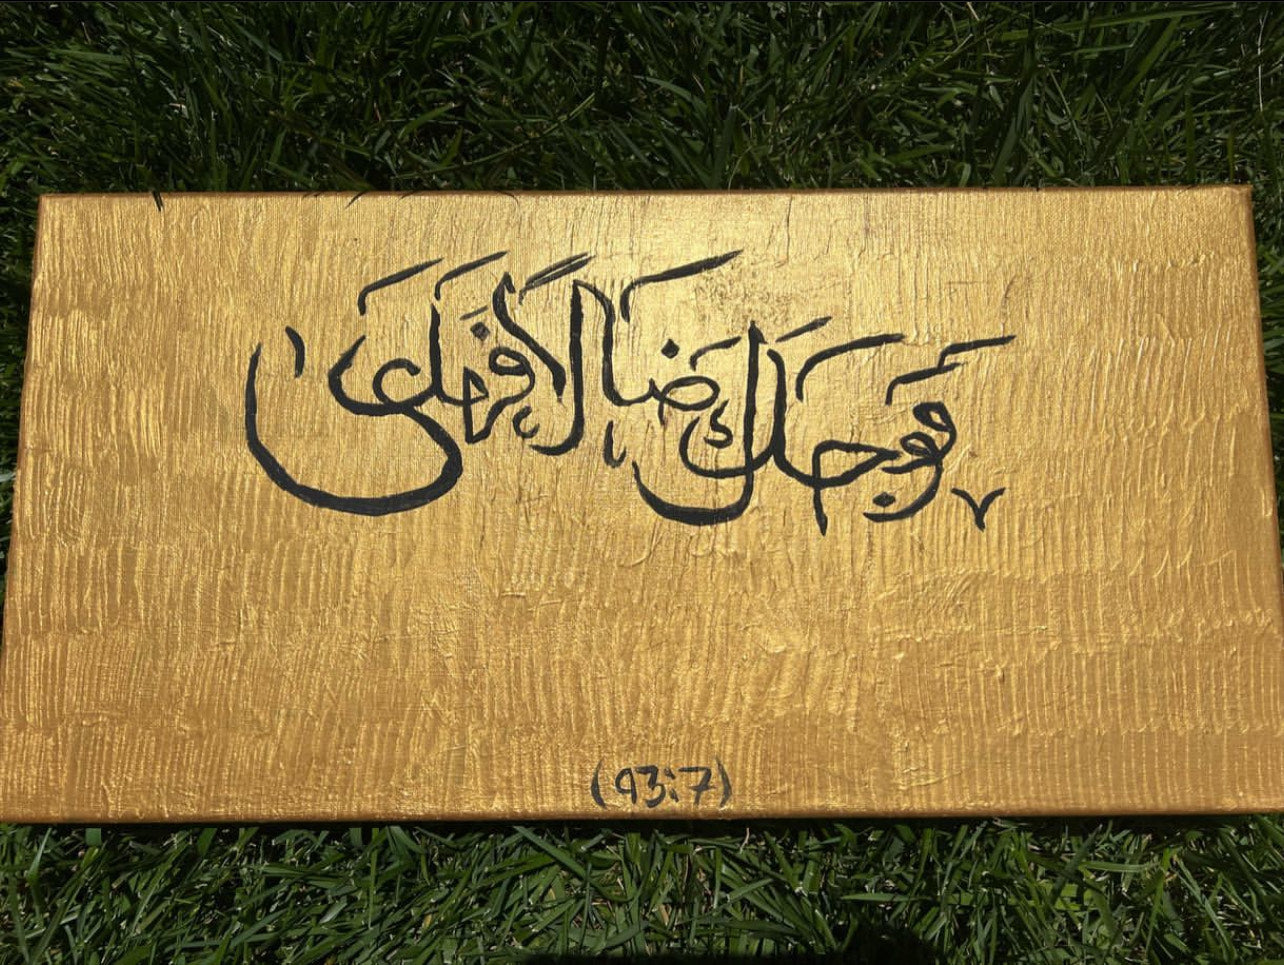 وَوَجَدَكَ ضَالًّا فَهَدَى
(93:7)